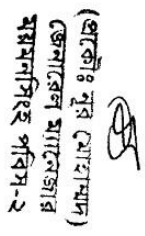 (প্রকৌঃ নুর মোহাম্মদ)
জেনারেল ম্যানেজার
ময়মনসিংহ পবিস-২